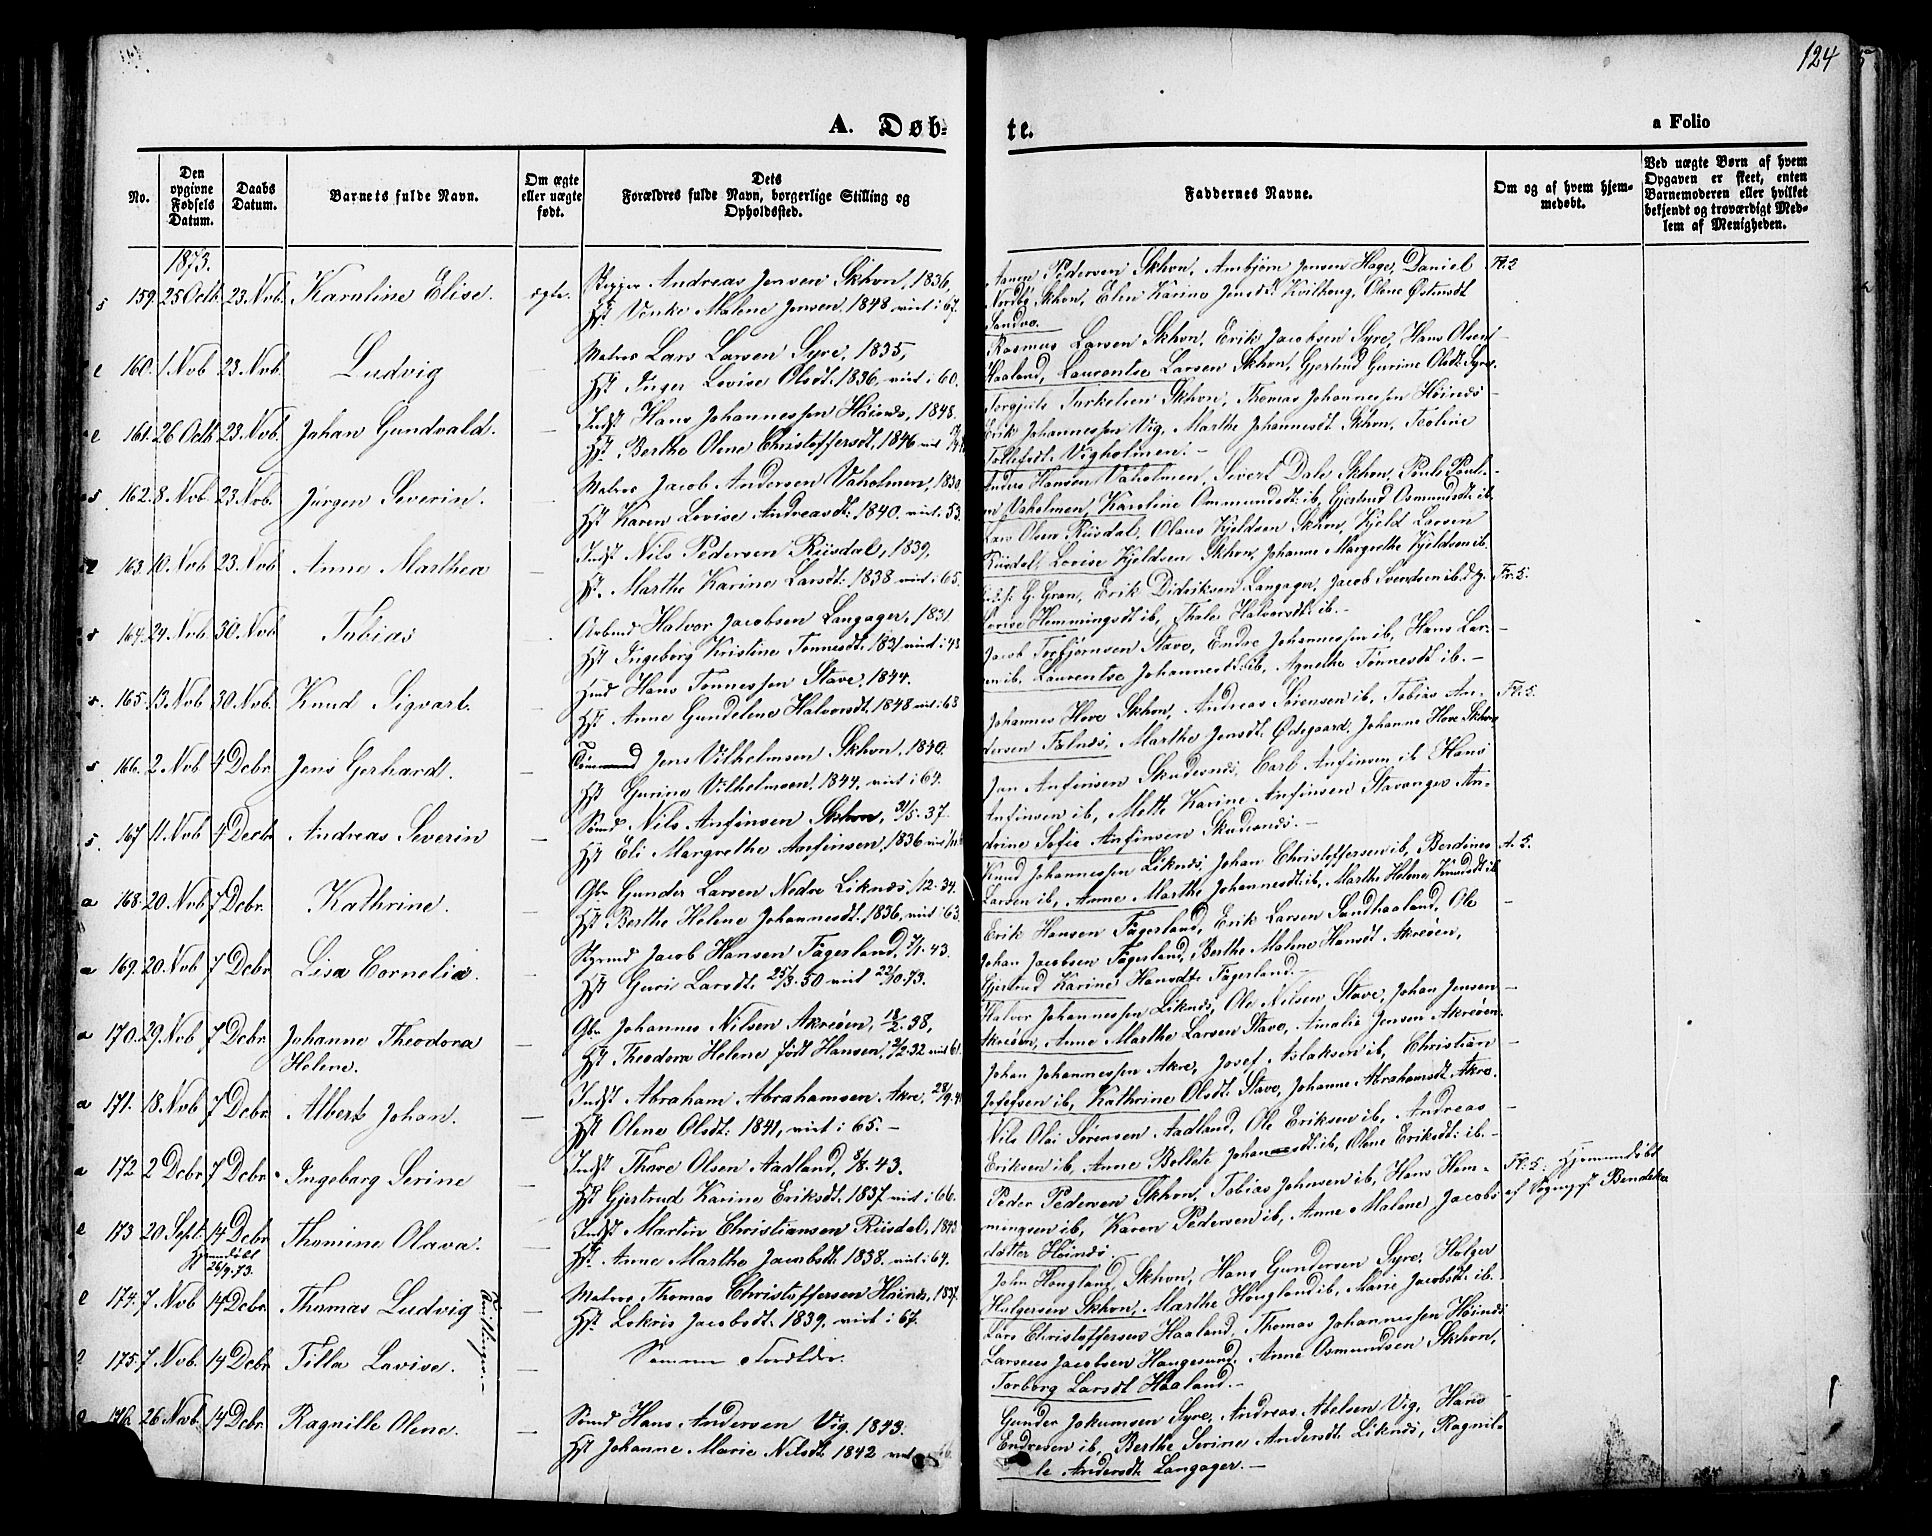 124
A. Døb-
te.
a Folio
No.
Den opgivne Fødsels Datum.
Daabs Datum.
Barnets fulde Navn.
Om ægte eller uægte født.
Dets
Forældres fulde Navn, borgerlige Stilling og
Opholdssted.
Faddernes Navne.
Om og af hvem hjem-
medøbt.
Ved uægte Børn af hvem
Opgaven er skeet, enten
Barnemoderen eller hvilket
bekjendt og troværdigt Med-
lem af Menigheden.
1873.
s 159. 25 Octb 23. Nvb. Karoline Elise. ægte. Andreas Jensen Skhvn, 1836,
Hst. Vinke Malene Jensen, 1848 viet i 67.
Pedersen Skhvn, Ambjørn Jensen Hage, Daniel
Nordbø Skhvn, Elen Karine Jensdt. Kvilhoug, Olene Østensdt
Sandvo.
160. 1 Nvb 23. Nvb. Ludvig Matros Lars Larsen Syre, 1835,
Hst Inger Lovise Olsdt. 1836, viet i 60.
Rasmus Larsen Skhvn, Erik Jacobsen Syre, Hans Olsen
Haaland, Laurentse Larsen Skhvn, Gjertrud Gurine Olsdt. Syre.
161. 26 Octb 23. Nvb. Johan Gundvald. — Indst Hans Johannessen Høinæs, 1848.
Hst. Berthe Olene Christoffersdt. 1846
Torgjuls Torkelsen Skhvn, Thomas Johannessen Høinæs
Erik Johannessen Vig, Marthe Johannesdt. Skhvn, Teoline
Tollefsdt. Vigholmen. —
162. 8. Nvb. 23. Nvb. Jørgen Severin. — Matros Jacob Andersen Vaholmen, 1830
Hst Karen Lovise Andreasdt. 1840. viet i 53.
Hansen Vaholmen, Sivert Dale Skhvn, Pauls Paul-
en Vaholmen, Karoline Ommundsdt. ib, Gjertrud Osmundsdt. ib.
163. 10. Nvb 23. Nvb Anne Marthea — Indst Nils Pedersen Riisdal, 1839,
Hst. Marthe Karine Larsdt. 1838 viet i 65.
Lars Olsen Riisdal, Olaus Kjeldsen Skhvn, Kjeld Larsen
Riisdal, Lovise Kjeldsen Skhvn, Johanne Margrethe Kjeldsen ib.
164. 24. Nvb 30. Nvb Tobias — Arbmd Halvor Jacobsen Langager, 1831
Hst Ingeborg Kristine Tønnesdt. 1821 viet i 43
G. Gran, Erik Didriksen Langager, Jacob Svendsen ib.
Lovise Hemmingsdt ib, Thale Halvorsdt. ib. —
165. 13. Nvb 30 Nvb. Knud Sigvart. — Hans Tønnessen Stave, 1844.
Hst Anne Gundelene Halvorsdt. 1848 viet i 68
Jacob Torbjørnsen Stave, Endre Johannessen ib, Hans Lar-
sen ib, Laurentse Johannesdt. ib, Agnethe Tønnesdt ib. —
166. 2 Nvb 4 Dcbr. Jens Gerhardt. — Jens Vilhelmsen Skhvn, 1840.
Hst Gurine Vilhelmsen, 1844, viet i 64.
Johannes Hove Skhvn, Andreas Sørensen ib, Tobias An-
dersen Falnæs, Marthe Jensdt. Ødegaard, Johanne Hove Skhvn
s. 167 11. Nvb 4 Decbr Andreas Severin — Sømd Nils Anfinsen Skhvn, 31/5. 37.
Hst Eli Margrethe Anfinsen, 1836
Jan Anfinsen Skudesnæs, Carl Anfinsen ib Hans
Anfinsen ib, Mette Karine Anfinsen Stavanger An-
drine Sofie Anfinsen Skudesnæs. —
a 168. 20. Nvb 7 Dcbr. Kathrine. — Gbr Gunder Larsen Nedre Liknæs,
Hst Berthe Helene Johannesdt. 1836, viet i 63.
Knud Johannessen Liknæs, Johan Christoffersen ib, Berdines
Larsen ib, Anne Marthe Johannesdt. ib, Marthe Helene Knudsdt ib
a 169. 20. Nvb 7 Dcbr. Lisa Cornelia. — Jacob Hansen Fagerland, 7/1. 43.
Hst Guri Larsdt. 25/3. 50 viet 22/10. 73.
Erik Hansen Fagerland, Erik Larsen Sandhaaland, Ole
Johan Jacobsen Fagerland, Berthe Malene Hansdt Akreøen,
Gjertrud Karine Hansdtr Fagerland. —
a 170. 29. Nvb 7 Dcbr. Johanne Theodora
Helene. — Gbr Johannes Nilsen Akreøen, 18/2. 38,
Hst Theodora Helene født Hansen,
Halvor Johannessen Liknæs, Ole Nilsen Stave, Johan Jensen
Akreøen, Anne Marthe Larsen Stave, Amalie Jensen Akreøen.
a 171. 18. Nvb 7 Dcbr. Albert Johan. — Indst Abraham Abrahamsen Akre,
Hst Olene Olsdt. 1841, viet i 65. —
Johan Johannessen Akre, Josef Aslaksen ib, Christian
Josefsen ib, Kathrine Olsdt. Stave, Johanne Abrahamsdt Akre.
a 172 2 Dcbr 7 Dcbr. Ingeborg Serine — Indst Thore Olsen Aadland, 8/8. 43.
Hst Gjertrud Karine Eriksdt. 1837 viet i 66.
Nils Olai Sørensen Aadland, Ole Eriksen ib, Andreas
Eriksen ib, Anne Bollete Johannesdt. ib, Olene Eriksdt. ib. —
173 20 Sept. 14 Dcbr. Thomine Olava. — Indst Martin Christiansen Riisdal, 1843
Hjemdøbt
26/9. 73.
Hst. Anne Marthe Jacobsdt. 1838. viet i 64.
Peder Pedersen Skhvn, Tobias Johnsen ib, Hans Hem-
mingsen ib, Karen Pedersen ib, Anne Malene Jacobs-
datter Høinæs.
Hjemmedøbt
af
174. 7. Nvb 14 Dcbr. Thomas Ludvig Tvillinger. — Matros Thomas Christoffersen Høinæs, 1837.
Hst. Lokris Jacobsdt. 1839, viet i 67.
John Hougland, Skhvn, Hans Gundersen Syre, Holger
Holgersen Skhvn, Marthe Hougland ib, Marie Jacobsdt. ib.
175. 7. Nvb. 14 Dcbr. Tilla Lovise. — Samme Forældre.
Lars Christoffersen Haaland, Thomas Johannessen Høinæs
Jacobsen Haugesund, Anne Osmundsen Skhvn,
Torborg Larsdt Haaland. —
176 26 Nvb. 14 Dcbr. Ragnille Olene. — Sømd Hans Andersen Vig, 1843.
Hst Johanne Marie Nilsdt 1842
Gunder Jokumsen Syre, Andreas Abelsen Vig, Hans
Endresen ib, Berthe Serine Andersdt. Liknæs, Ragnil-
le Andersdt. Langager. —